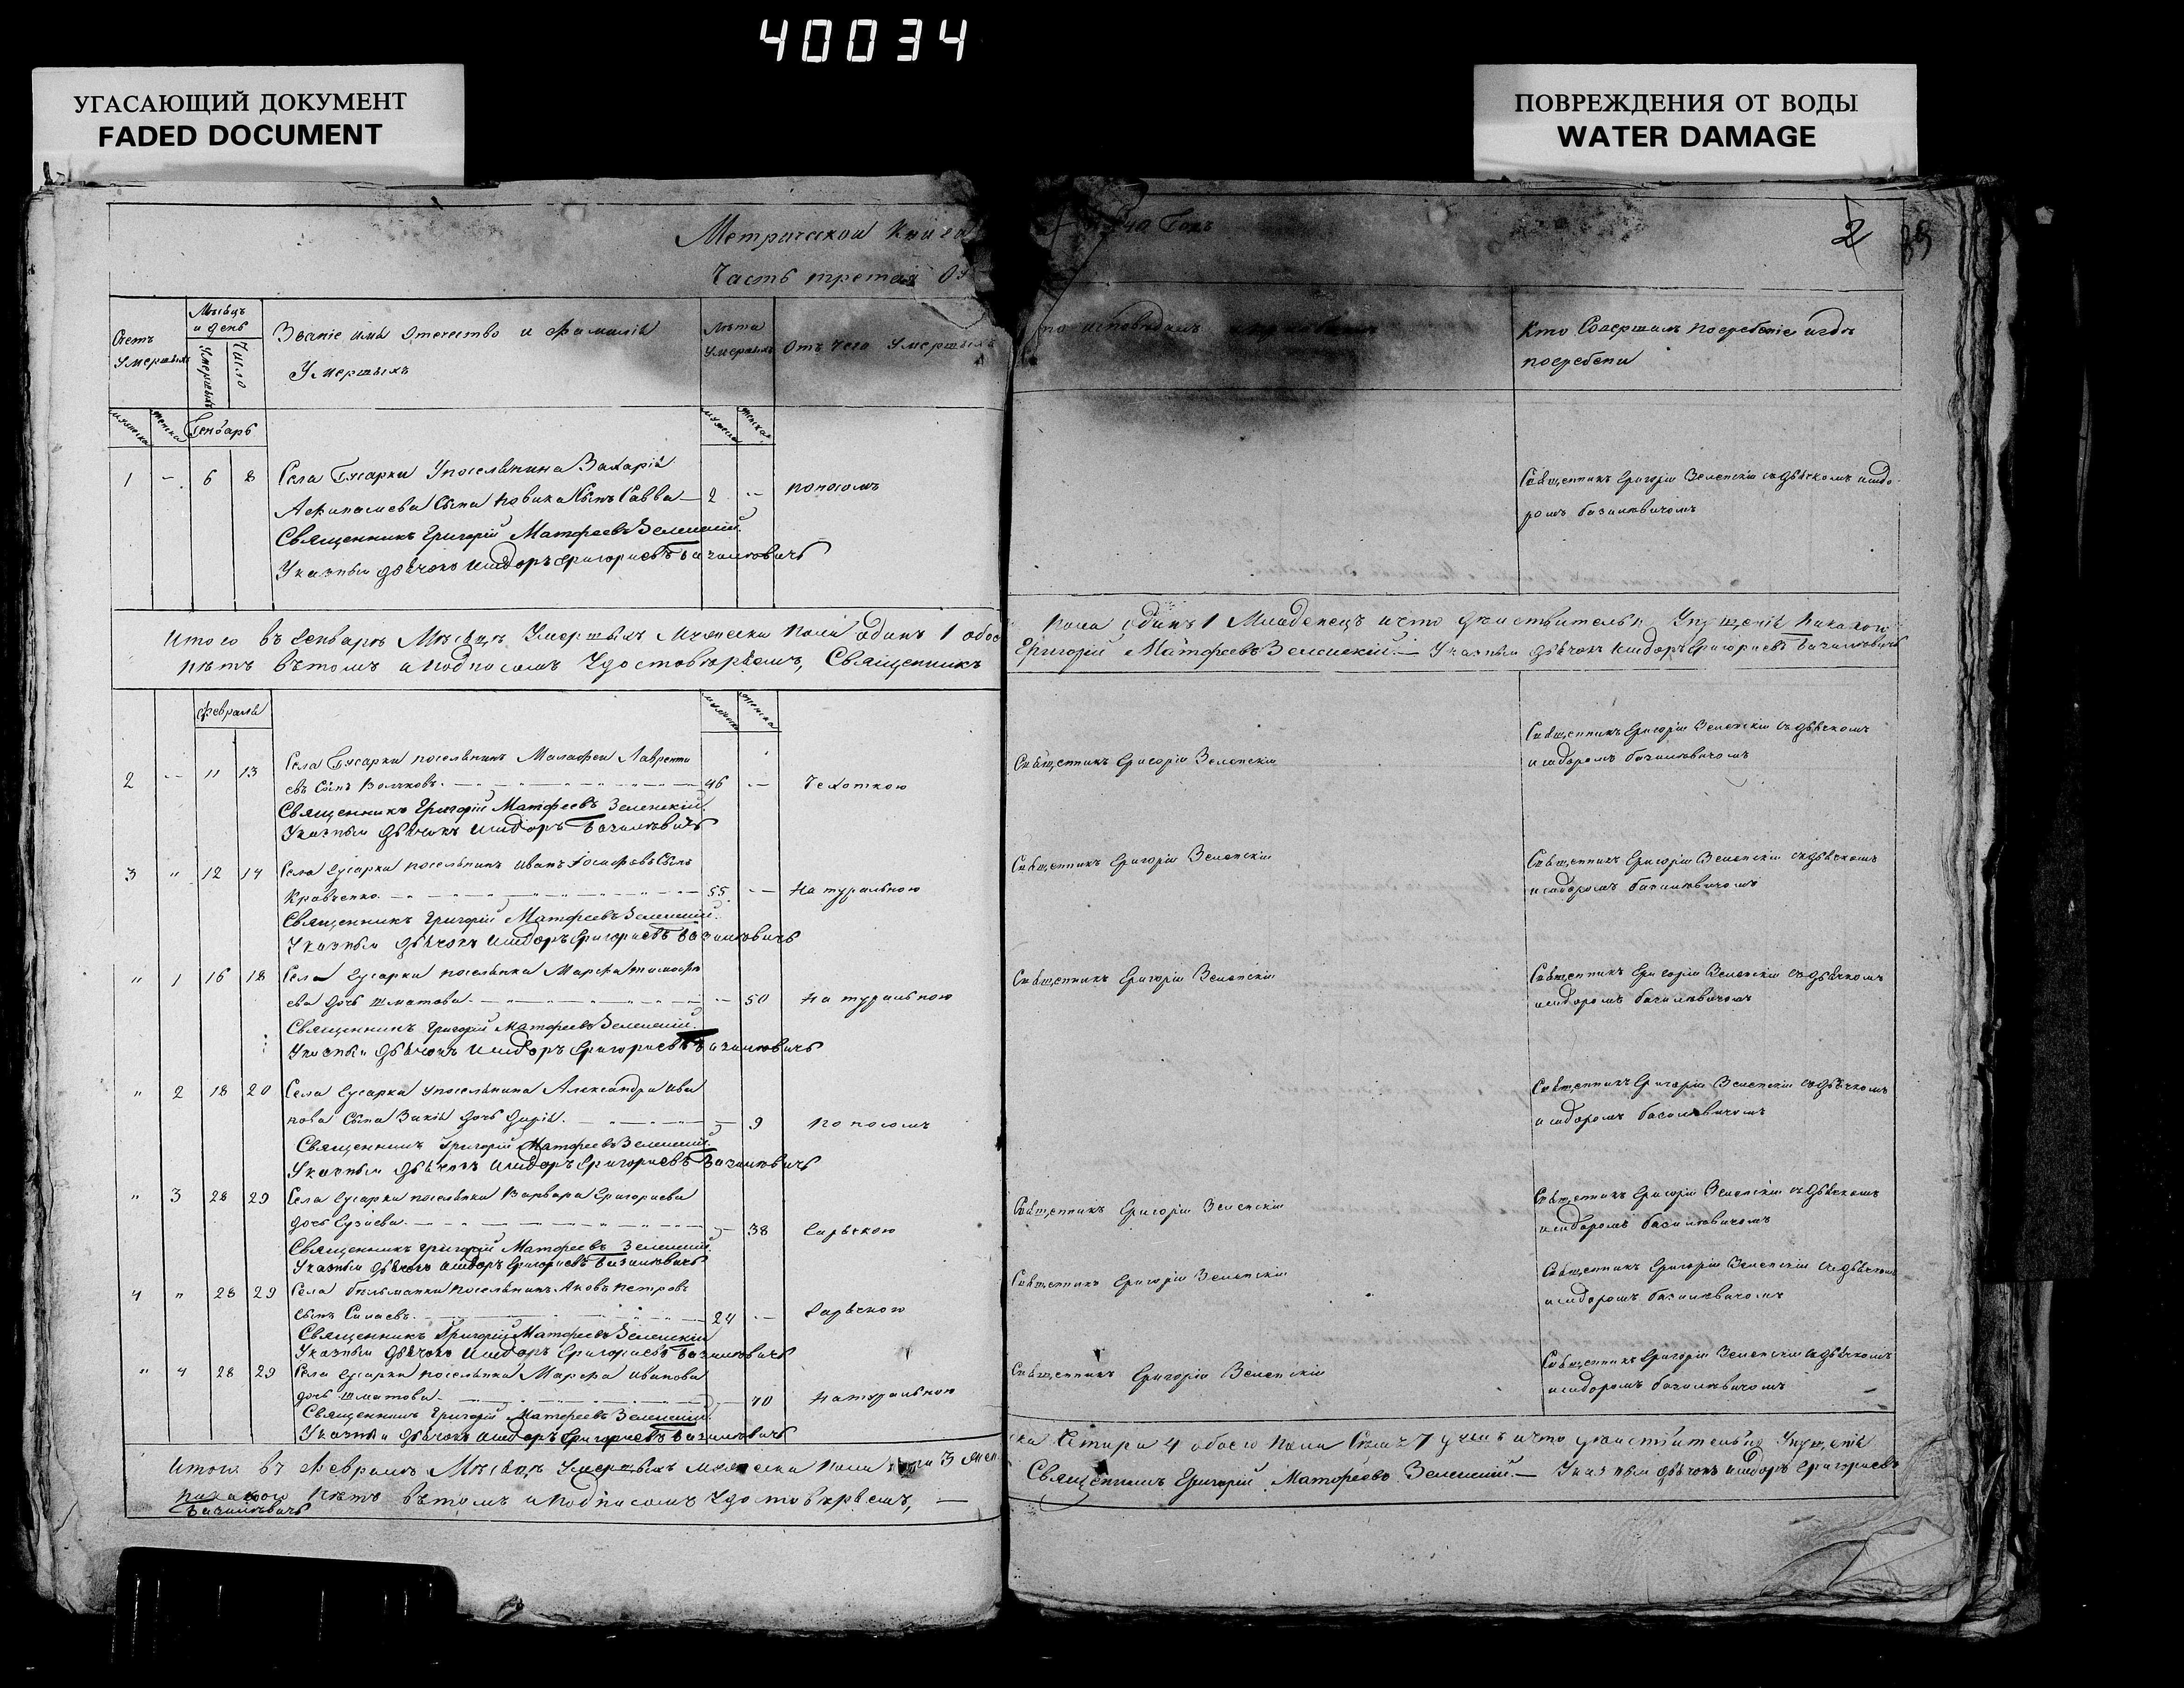 40034
УГАСАЮЩИЙ ДОКУМЕНТ
FADED DOCUMENT
ПОВРЕЖДЕНИЯ ОТ ВОДЫ
WATER DAMAGE
Метрической Книги
Часть третая
40 Годъ
2
Счетъ Умершыхъ
Мѣсяцъ и день
Умершыхъ
Число
Званіе имя Отечество и Фамилія
Умершыхъ
Лѣта Умершыхъ
Отъ чего Умершыхъ
исповѣдалъ
Кто Совершалъ погребеніе и гдѣ
погребены
мужеска
женска
Генварь
мужеска
женска
1 - 6 8 Села Гусарки Упоселянина Захарія
Афанасиева Сына Новика Сынъ Савва 2 -- поносомъ
Священникъ Григорій Матфеевъ Зеленский
Указный дьячокъ Исидоръ Григориевъ Базилювичъ
Священникъ Григорій Зеленскій съ дьячкомъ исидо-
ромъ базилювичомъ
Итого въ Генварѣ Мѣсяцѣ Умершыхъ Мужеска Пола одинъ 1 обоего
Пола одинъ 1 Младенецъ и что дѣйствительно Упущенія никакого
нѣтъ въ томъ и подписомъ Удостовѣряемъ, Священникъ
Григорій Матфеевъ Зеленский — Указный дьячокъ Исидоръ Григориевъ Базилювичъ
Февраля
мужеска
женска
2 -- 11 13 Села Гусарки поселянинъ Малафей Лавренти
евъ Сынъ Волчковъ 46 -- Чехоткою
Священникъ Григорій Матфеевъ Зеленский
Указный дьячокъ Исидоръ Базилювичъ
Священникъ Григорій Зеленскій
Священникъ Григорій Зеленскій съ дьячкомъ
исидоромъ базилювичомъ
3 " 12 14 Села Гусарки поселянинъ Иванъ Іосифовъ Сынъ
Кравченко 55 -- Натуральною
Священникъ Григорій Матфеевъ Зеленский
Указный дьячокъ Исидоръ Григориевъ Базилювичъ
Священникъ Григорій Зеленскій
Священникъ Григорій Зеленскій съ дьячкомъ
исидоромъ базилювичомъ
" 1 16 18 Села Гусарки поселянка Марфа тимофе
ева дочь шматова -- 50 Натуральною
Священникъ Григорій Матфеевъ Зеленский
Указный дьячокъ Исидоръ Григориевъ Базилювичъ
Священникъ Григорій Зеленскій
Священникъ Григорій Зеленскій съ дьячкомъ
исидоромъ базилювичомъ
" 2 18 20 Села Гусарки Упоселянина Александра Ива
нова Сына дочь Дарія 9 поносомъ
Священникъ Григорій Матфеевъ Зеленский
Указный дьячокъ Исидоръ Григориевъ Базилювичъ
Священникъ Григорій Зеленскій съ дьячкомъ
исидоромъ базилювичомъ
" 3 28 29 Села Гусарки поселянка Варвара Григориева
дочь 38 Гарячкою
Священникъ Григорій Матфеевъ Зеленский
Указный дьячокъ Исидоръ Григориевъ Базилювичъ
Священникъ Григорій Зеленскій
Священникъ Григорій Зеленскій съ дьячкомъ
исидоромъ базилювичомъ
4 " 28 29 Села бѣльманки поселянинъ Яковъ петровъ
сынъ 24 -- Гарячкою
Священникъ Григорій Матфеевъ Зеленский
Указный дьячокъ Исидоръ Григориевъ Базилювичъ
Священникъ Григорій Зеленскій
Священникъ Григорій Зеленскій съ дьячкомъ
исидоромъ базилювичомъ
" 4 28 29 Села Гусарки поселянка Марфа иванова
дочь шматова 70 Натуральною
Священникъ Григорій Матфеевъ Зеленский
Указный дьячокъ Исидоръ Григориевъ Базилювичъ
Священникъ Григорій Зеленскій
Священникъ Григорій Зеленскій съ дьячкомъ
исидоромъ базилювичомъ
Итого въ Февралѣ Мѣсяцѣ Умершыхъ мужеска пола 3 жен
ска Четыри 4 обоего пола 7 душъ и что дѣйствительно Упущенія
никакого нѣтъ въ томъ и подписомъ Удостовѣряемъ, —
Священникъ Григорій Матфеевъ Зеленский — Указный дьячокъ Исидоръ Григориевъ
Базилювичъ